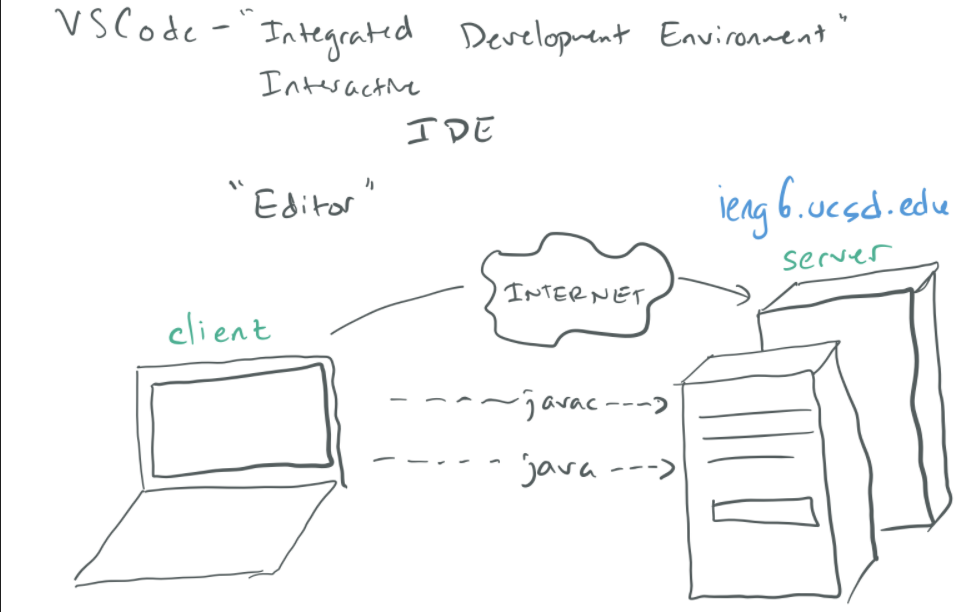 VSCode - "Integrated Development Environment"
Interactive
IDE
"Editor"
ieng6.ucsd.edu
server
INTERNET
client
javac
java